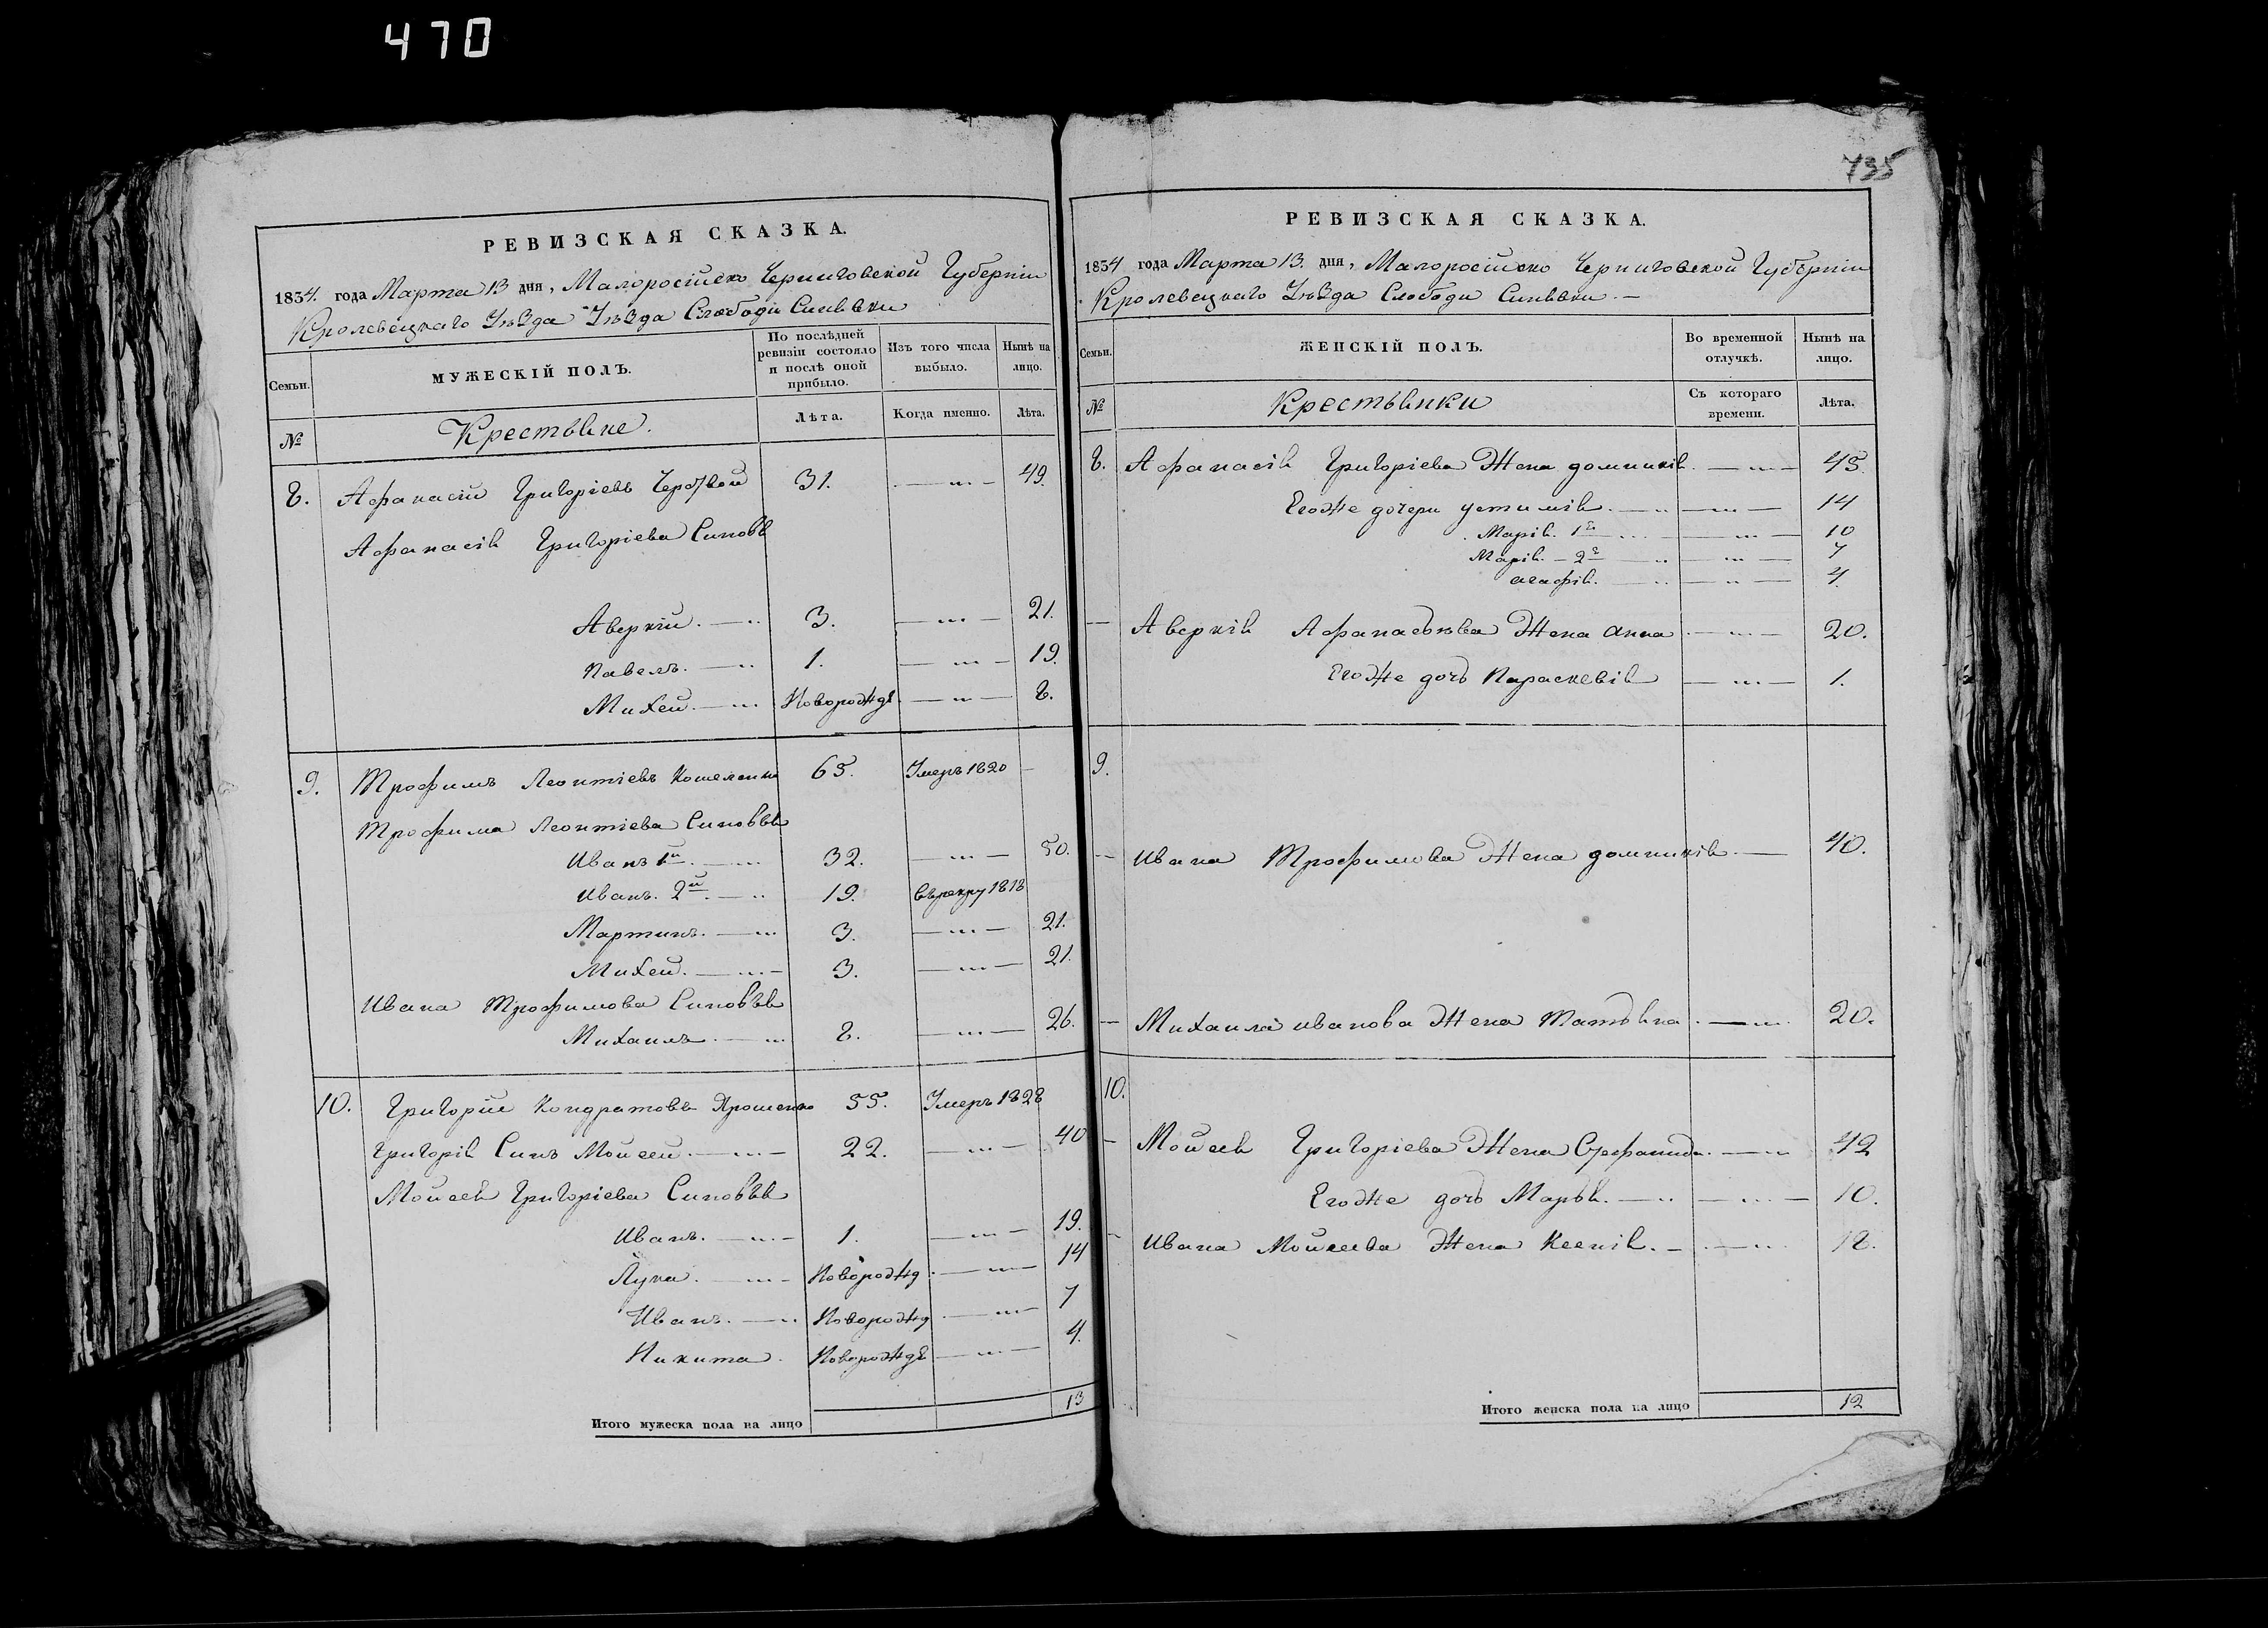 470
735
РЕВИЗСКАЯ СКАЗКА.
1834. года Марта 13 дня, Малоросійско Черниговской Губерніи
Кролевецкаго Уѣзда Уѣзда Слободи Синявки
Семьи.
МУЖЕСКІЙ ПОЛЪ.
По послѣдней ревизіи состояло и послѣ оной прибыло.
Изъ того числа выбыло.
Нынѣ на лицо.
№
Крестьяне.
Лѣта.
Когда именно.
Лѣта.
8. Афанасій Григоріевъ 31. 49.
Афанасія Григоріева Синовя
Аверкій. 3. 21.
Павелъ. 1. 19.
Михей. Новорожде 8.
9. Трофимъ Леонтіевъ 65. Умеръ 1820
Трофима Леонтіева Синовья
Иванъ 1й 32. 50.
Иванъ. 2й 19. 1818
Мартинъ. 3. 21.
Михей. 3. 21.
Ивана Трофимова Синовья
Михаилъ 8. 26.
10. Григорій Кондратовъ Ярошенко 55. Умеръ 1828
Григорія Синъ Мойсей. 22. 40
Мойсея Григоріева Синовья
Иванъ. 1. 19.
Лука. Новорожд 14
Иванъ. Новорожд 7
Никита. Новорожде 4.
Итого мужеска пола на лицо 13
РЕВИЗСКАЯ СКАЗКА.
1834 года Марта 13. дня, Малоросійско Черниговской Губерніи
Кролевецкаго Уѣзда Слободи Синявки.
Семьи.
ЖЕНСКІЙ ПОЛЪ.
Во временной отлучкѣ.
Нынѣ на лицо.
№
Крестьянки
Съ котораго времени.
Лѣта.
8. Афанасія Григоріева Жена домникія 45.
Егоже дочери устимія 14
Марія. 1я 10
Марія. 2я 7
агафія. 4.
Аверкія Афанасьева Жена анна 20.
Егоже дочь Параскевія 1.
9.
Ивана Трофимова Жена домникія 40.
Михаила иванова Жена Татьяна 20.
10.
Мойсея Григоріева Жена 42
Егоже дочь Марья. 10.
Ивана Мойсеева Жена Ксенія. 18.
Итого женска пола на лицо 12